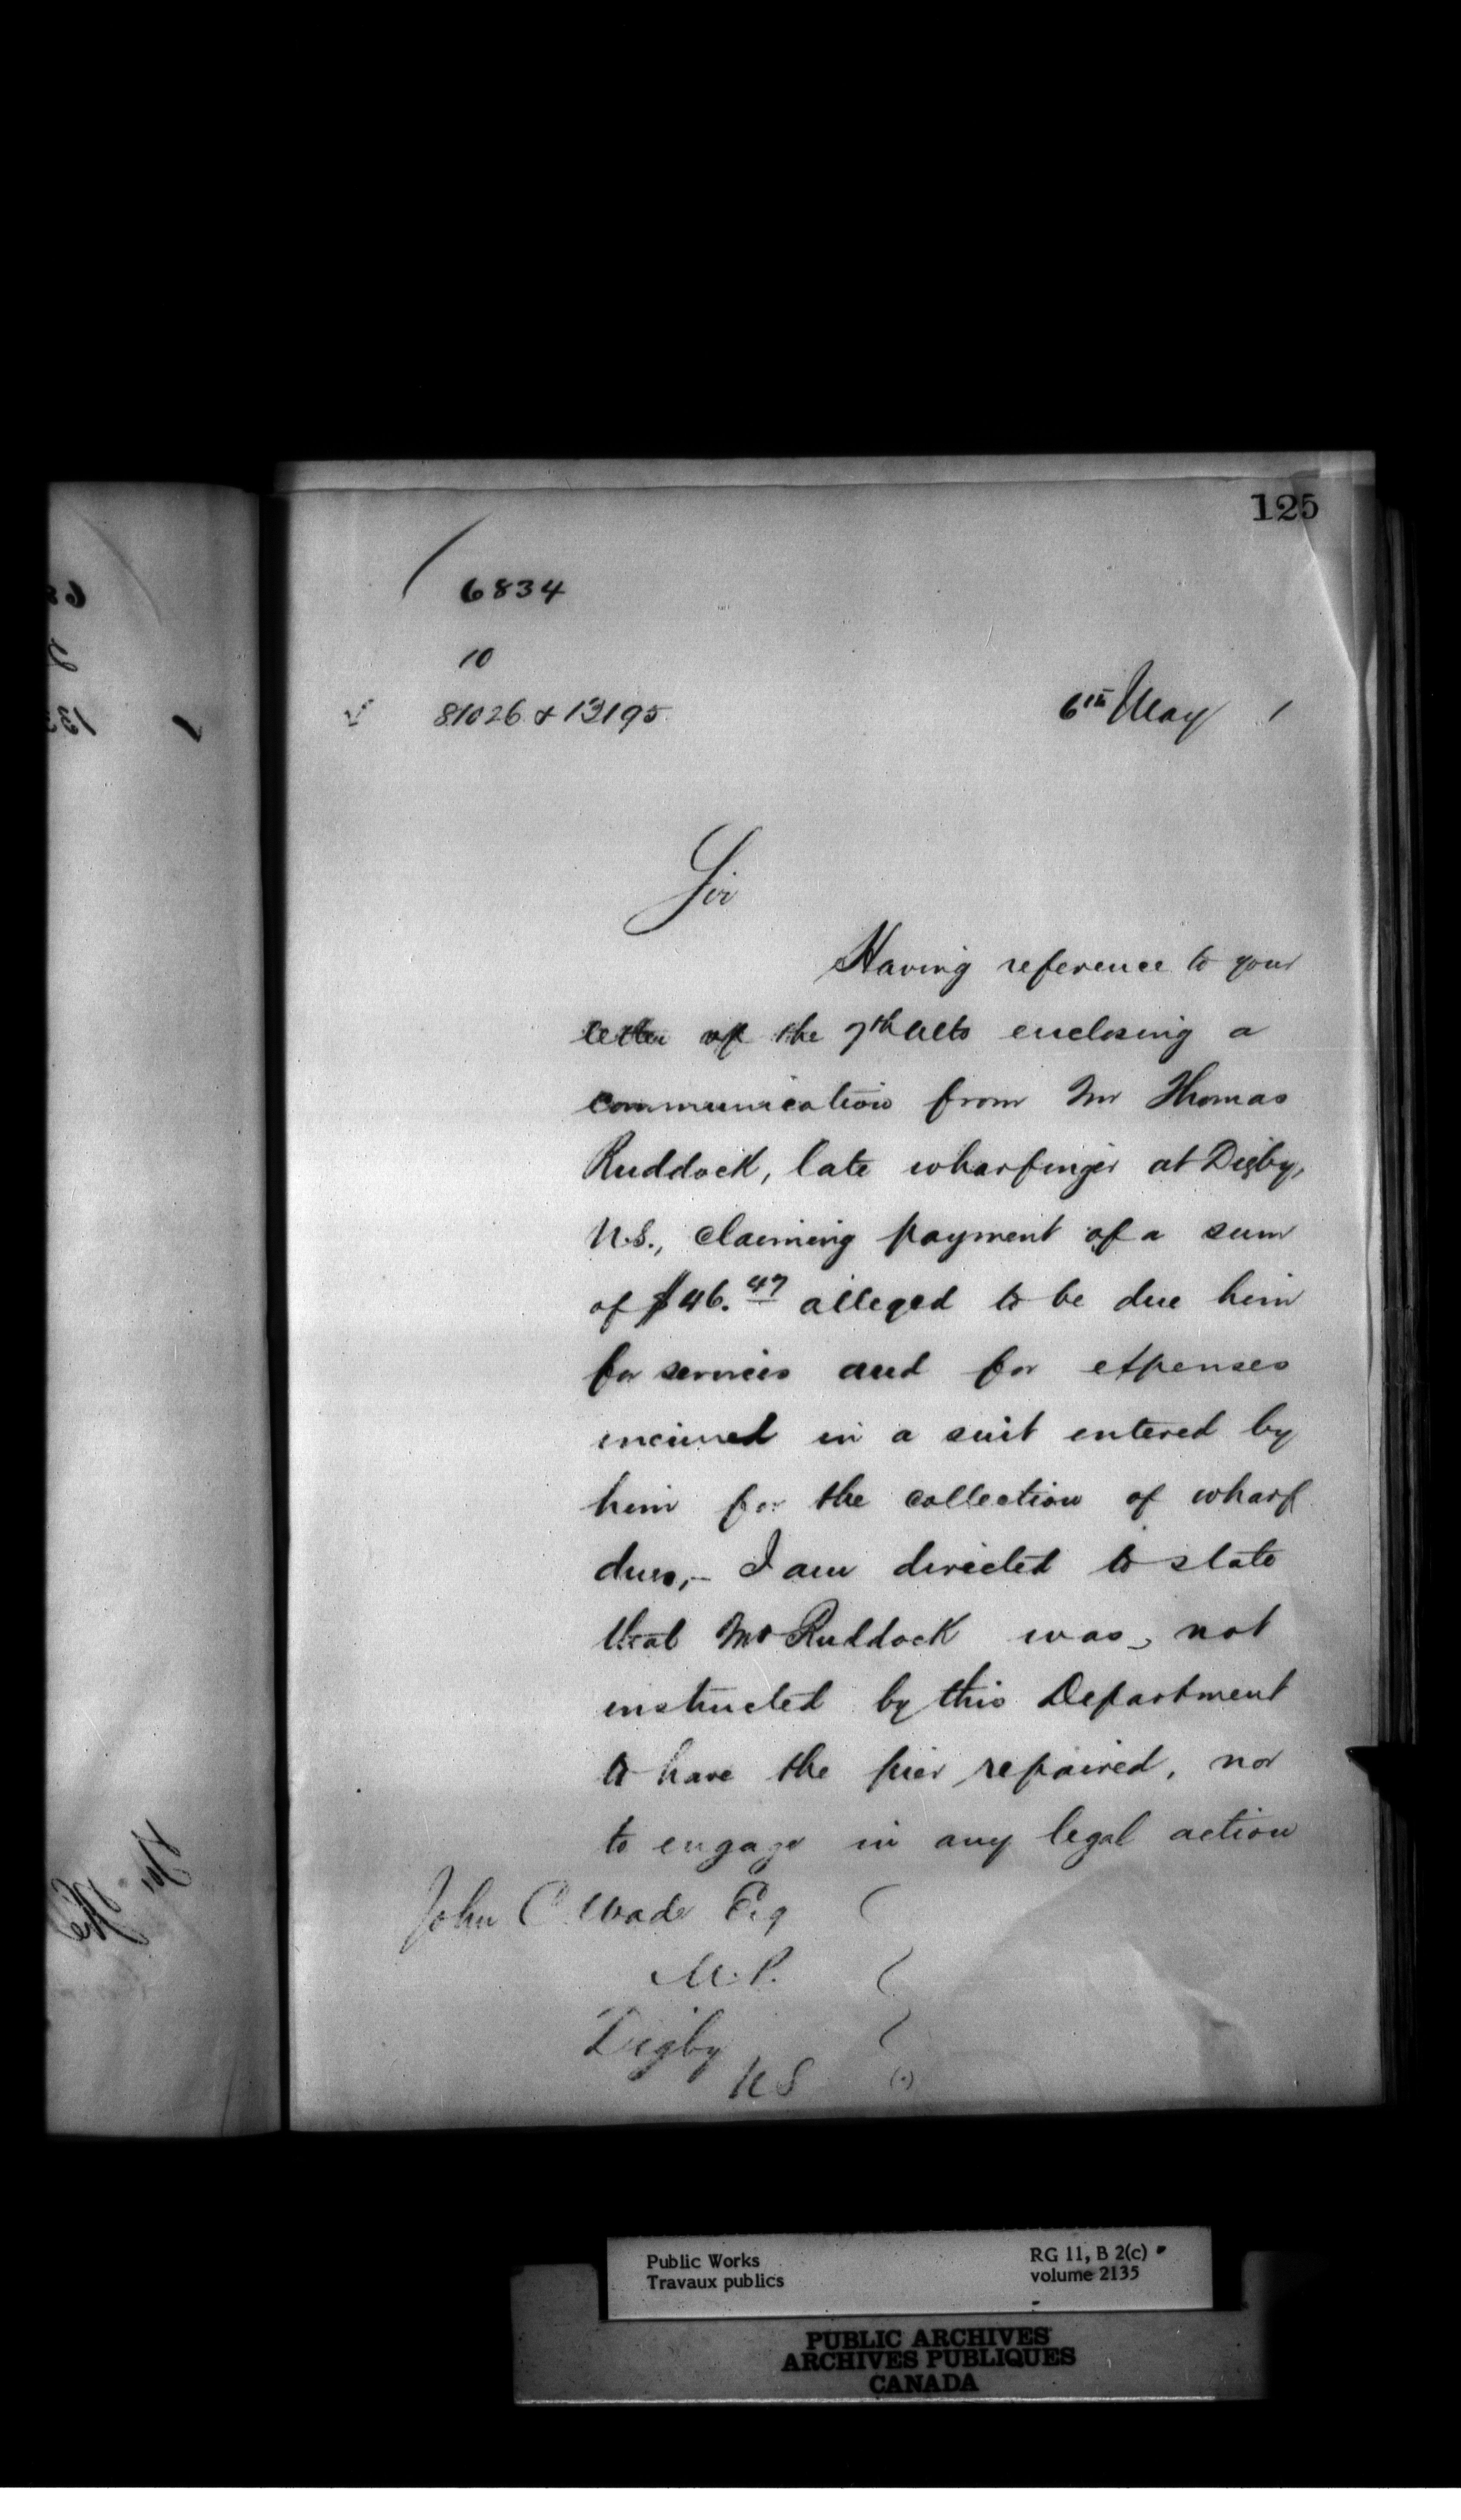 125
6834
10
81026 & 13195
6th May 1
Sir
Having reference to your
letter of the 7th Ulto enclosing a
communication from Mr Thomas
Ruddock, late wharfinger at Digby,
N.S., claiming payment of a sum
of $46.47 alleged to be due him
for services and for expenses
incurred in a suit entered by
him for the collection of wharf
dues,- I am directed to state
that Mr Ruddock was not
instructed by this Department
to have the pier repaired, nor
to engage in any legal action
John C. Wade Esq
M.P.
Digby
N S
Public Works
Travaux publics
RG 11, B 2(c)
volume 2135
PUBLIC ARCHIVES
ARCHIVES PUBLIQUES
CANADA